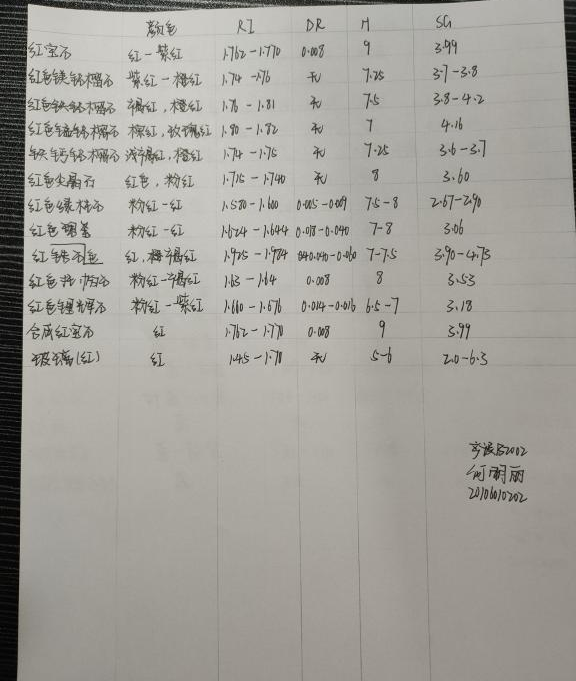 颜色 RI DR H SG
红宝石 红-紫红 1.762-1.770 0.008 9 3.99
红色镁铝榴石 紫红-橙红 1.74-1.76 无 7.25 3.7-3.8
红色铁铝榴石 褐红,橙红 1.76-1.81 无 7.5 3.8-4.2
红色锰铝榴石 棕红,玫瑰红 1.80-1.82 无 7 4.16
铁钙铝榴石 浅褐红,橙红 1.74-1.75 无 7.25 3.6-3.7
红色尖晶石 红色,粉红 1.715-1.740 无 8 3.60
红色绿柱石 粉红-红 1.580-1.600 0.005-0.009 7.5-8 2.67-2.90
红色碧玺 粉红-红 1.624-1.644 0.018-0.040 7-8 3.06
红锆石色 红,褐红 1.925-1.984 0.040-0.060 7-7.5 3.90-4.73
红色托帕石 粉红-褐红 1.63-1.64 0.008 8 3.53
红色锂辉石 粉红-紫红 1.660-1.676 0.014-0.016 6.5-7 3.18
合成红宝石 红 1.762-1.770 0.008 9 3.99
玻璃(红) 红 1.45-1.70 无 5-6 2.0-6.3
2002
何丽丽
20106010202